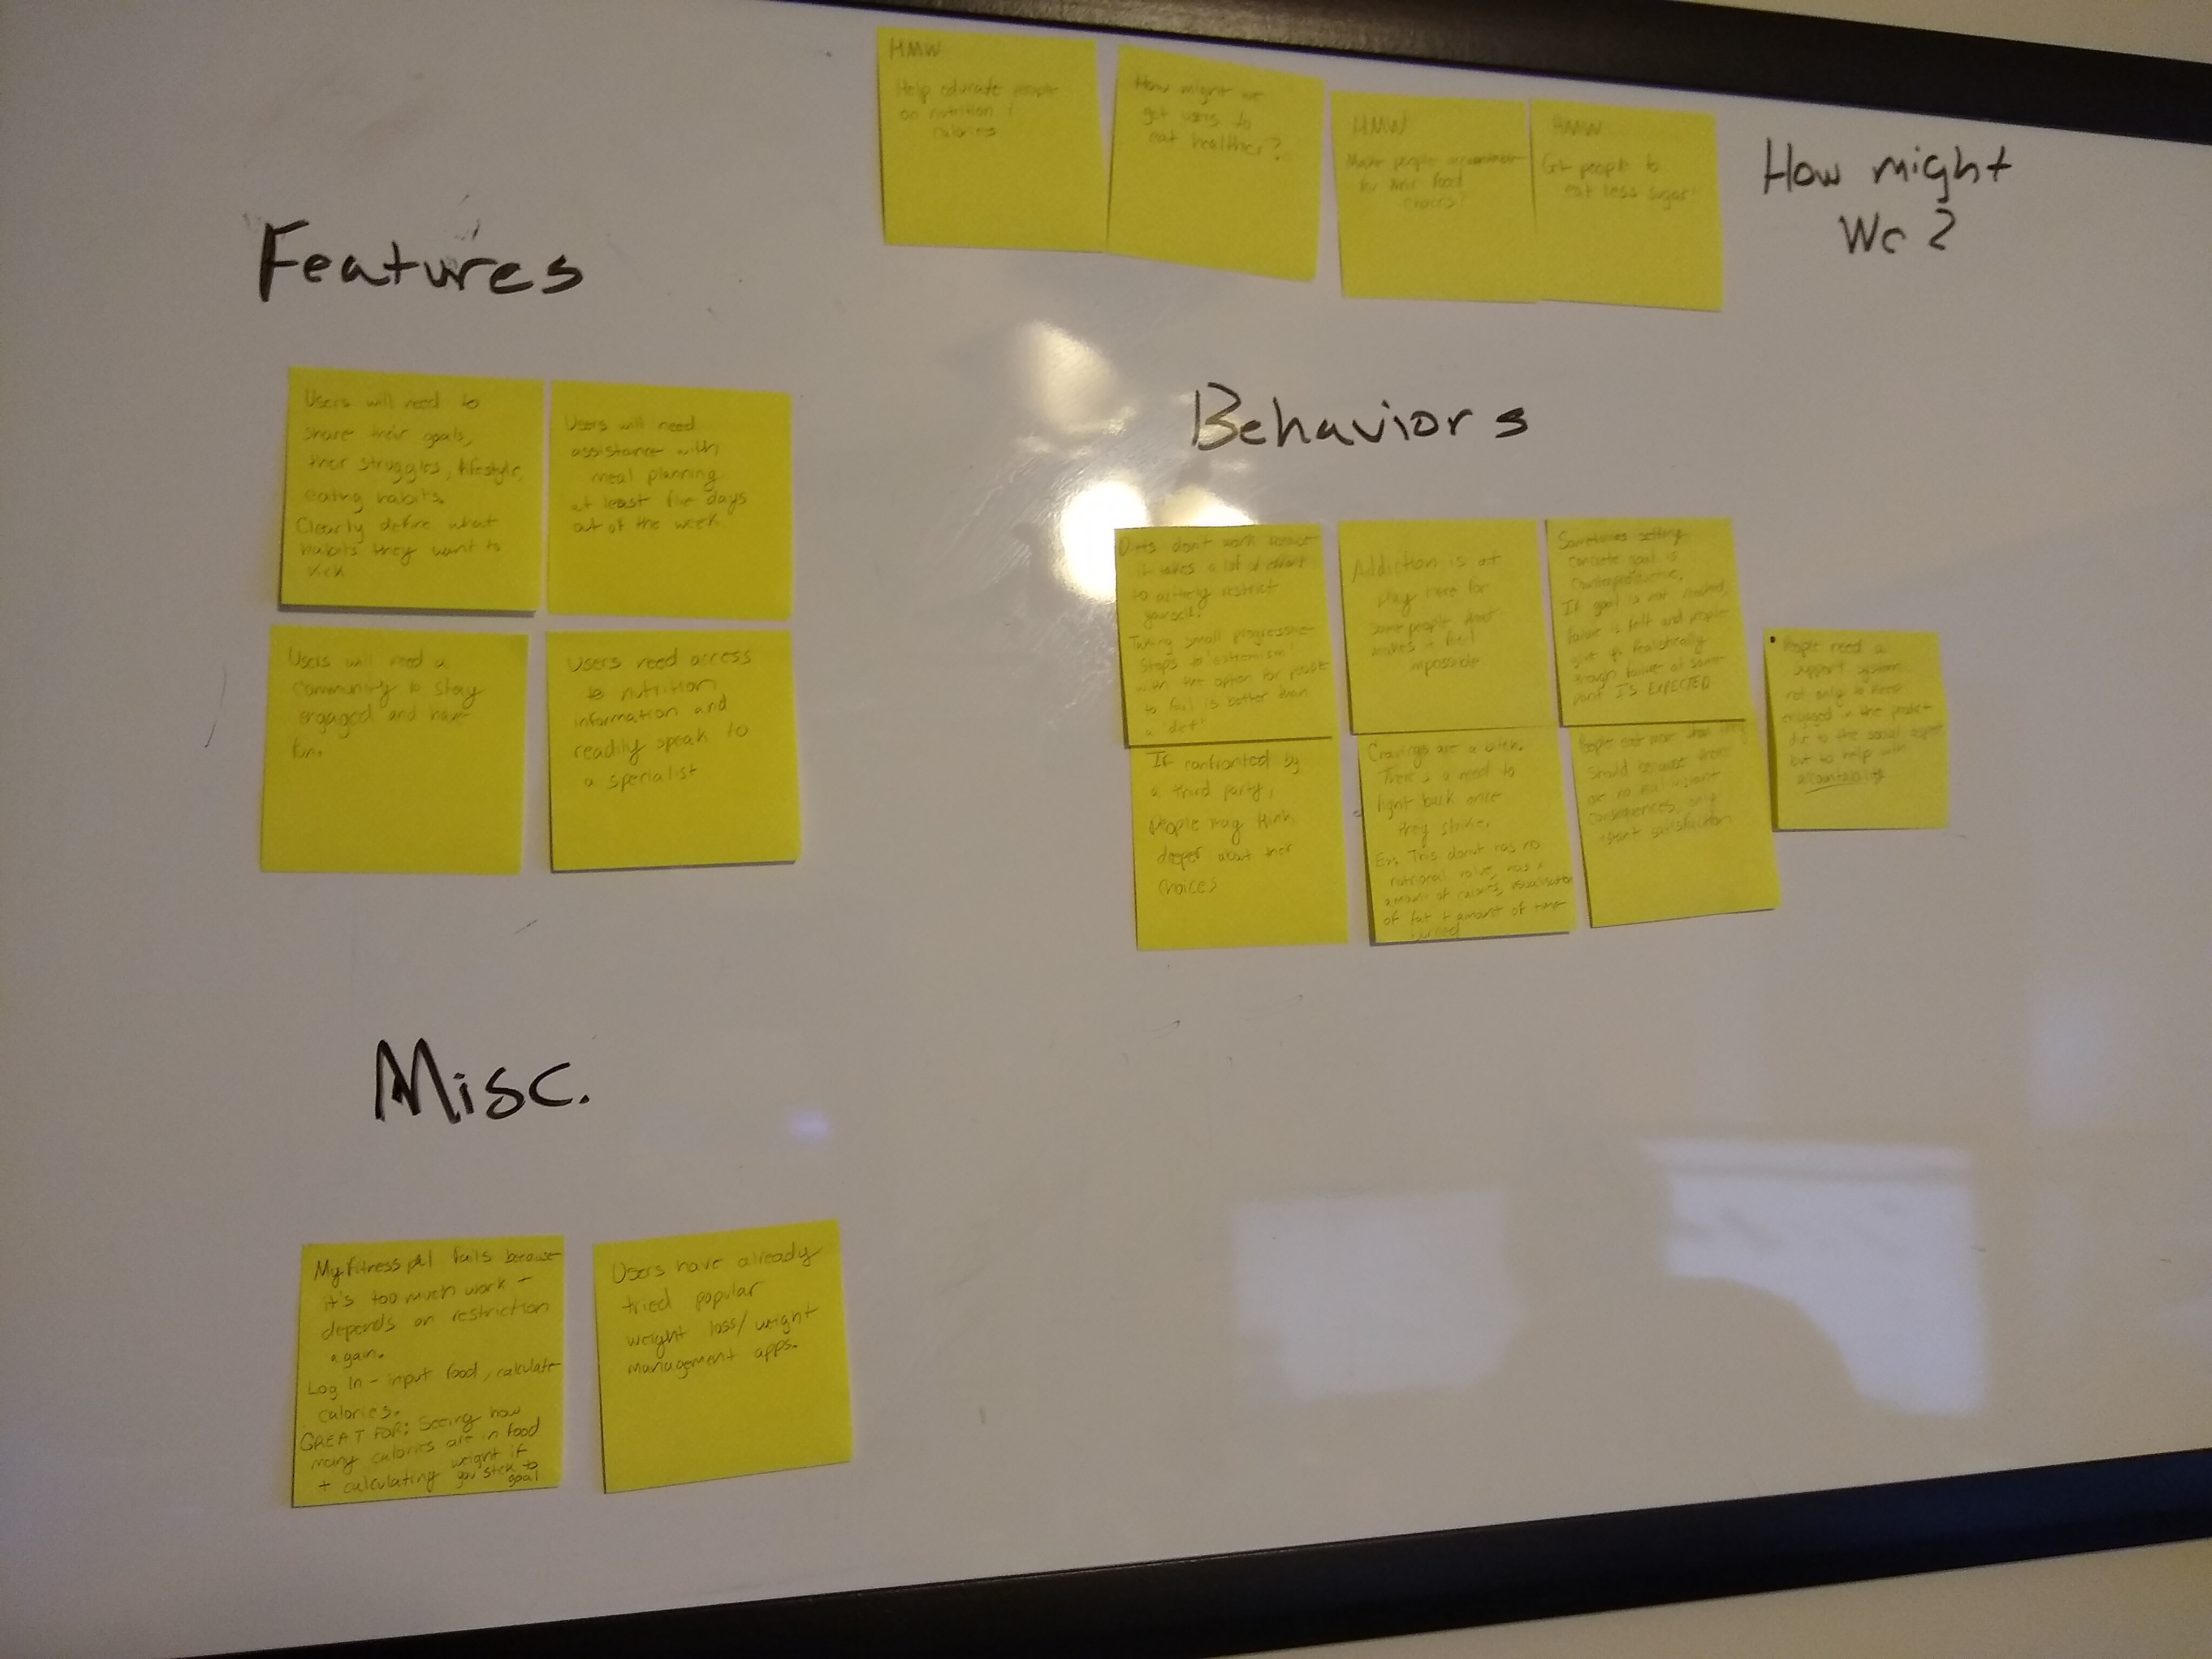 HMW
Help educate people
on nutrition &
calories
How might we
get users to
eat healthier?
HMW
Make people accountable
for their food
choices?
HMW
Get people to
eat less sugar?
How might
We?
Features
Users will need to
share their goals,
their struggles, lifestyle,
eating habits.
Clearly define what
habits they want to
kick
Users will need
assistance with
meal planning
at least five days
out of the week
Users will need a
community to stay
engaged and have
fun.
Users need access
to nutrition
information and
readily speak to
a specialist
Behaviors
Diets don't work because
it takes a lot of effort
to actively restrict
yourself.
Taking small progressive
steps to 'extremism'
with the option for people
to fail is better than
a 'diet'
Addiction is at
play here for
some people that
makes it feel
impossible
Sometimes setting
concrete goal is
counterproductive.
If goal is not reached,
failure is felt and people
give up. Realistically
though failure at some
point IS EXPECTED
• People need a
support system
not only to keep
engaged in the product
due to the social aspect
but to help with
accountability
If confronted by
a third party,
People may think
deeper about their
choices
Cravings are a bitch.
There's a need to
fight back once
they strike.
Ex: This donut has no
nutrional value, has x
amount of calories, visualisation
of fat + amount of time
burned
People eat more than they
should because there
are no real instant
consequences, only
instant satisfaction
Misc.
Myfitness pal fails because
it's too much work +
depends on restriction
again.
Log In - input food, calculate
calories.
GREAT FOR: Seeing how
many calories are in food
+ calculating weight if
you stick to
goal
Users have already
tried popular
weight loss/weight
management apps.